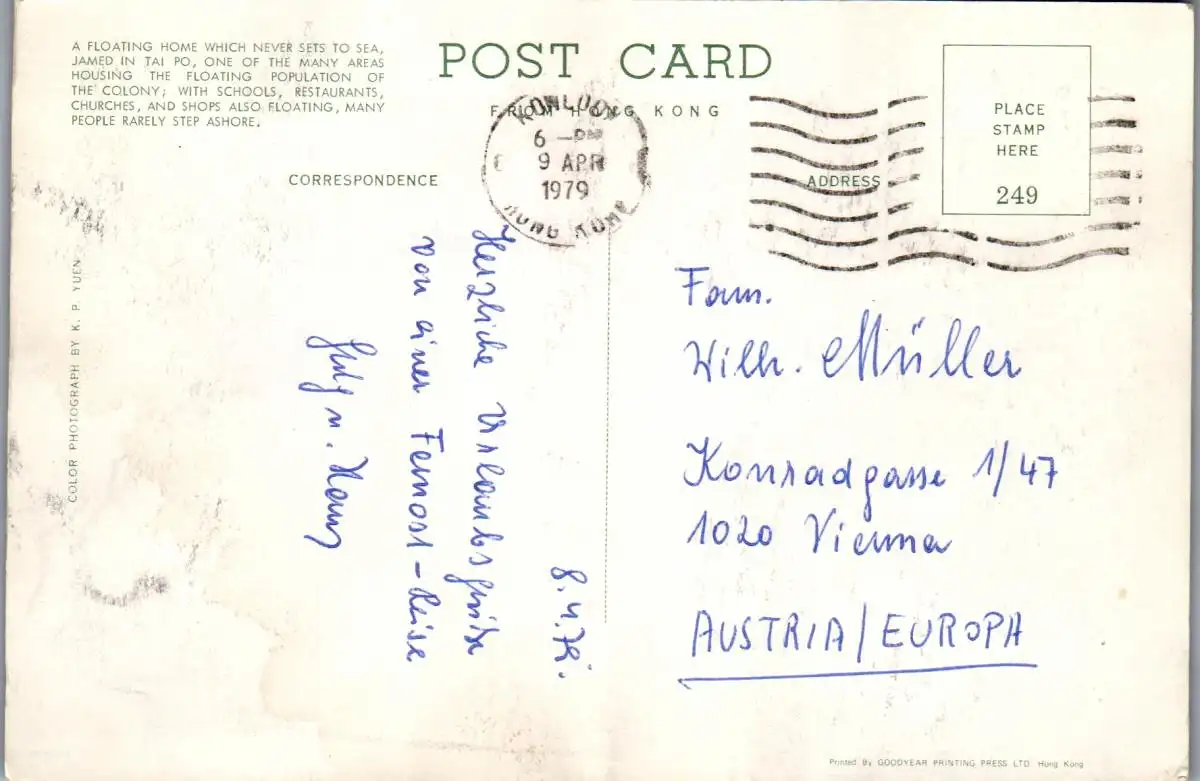 A FLOATING HOME WHICH NEVER SETS TO SEA,
JAMED IN TAI PO, ONE OF THE MANY AREAS
HOUSING THE FLOATING POPULATION OF
THE COLONY; WITH SCHOOLS, RESTAURANTS,
CHURCHES, AND SHOPS ALSO FLOATING, MANY
PEOPLE RARELY STEP ASHORE.
POST CARD
FROM HONG KONG
KOWLOON
6 – PM
9 APR
1979
HONG KONG
PLACE
STAMP
HERE
249
CORRESPONDENCE
ADDRESS
COLOR PHOTOGRAPH BY K. P. YUEN
8.4.79.
Herzliche Urlaubsgrüße
von einer Fernost-Reise
u. Hans
Fam.
Wilh. Müller
Konradgasse 1/47
1020 Vienna
AUSTRIA/EUROPA
Printed By GOODYEAR PRINTING PRESS LTD. Hong Kong